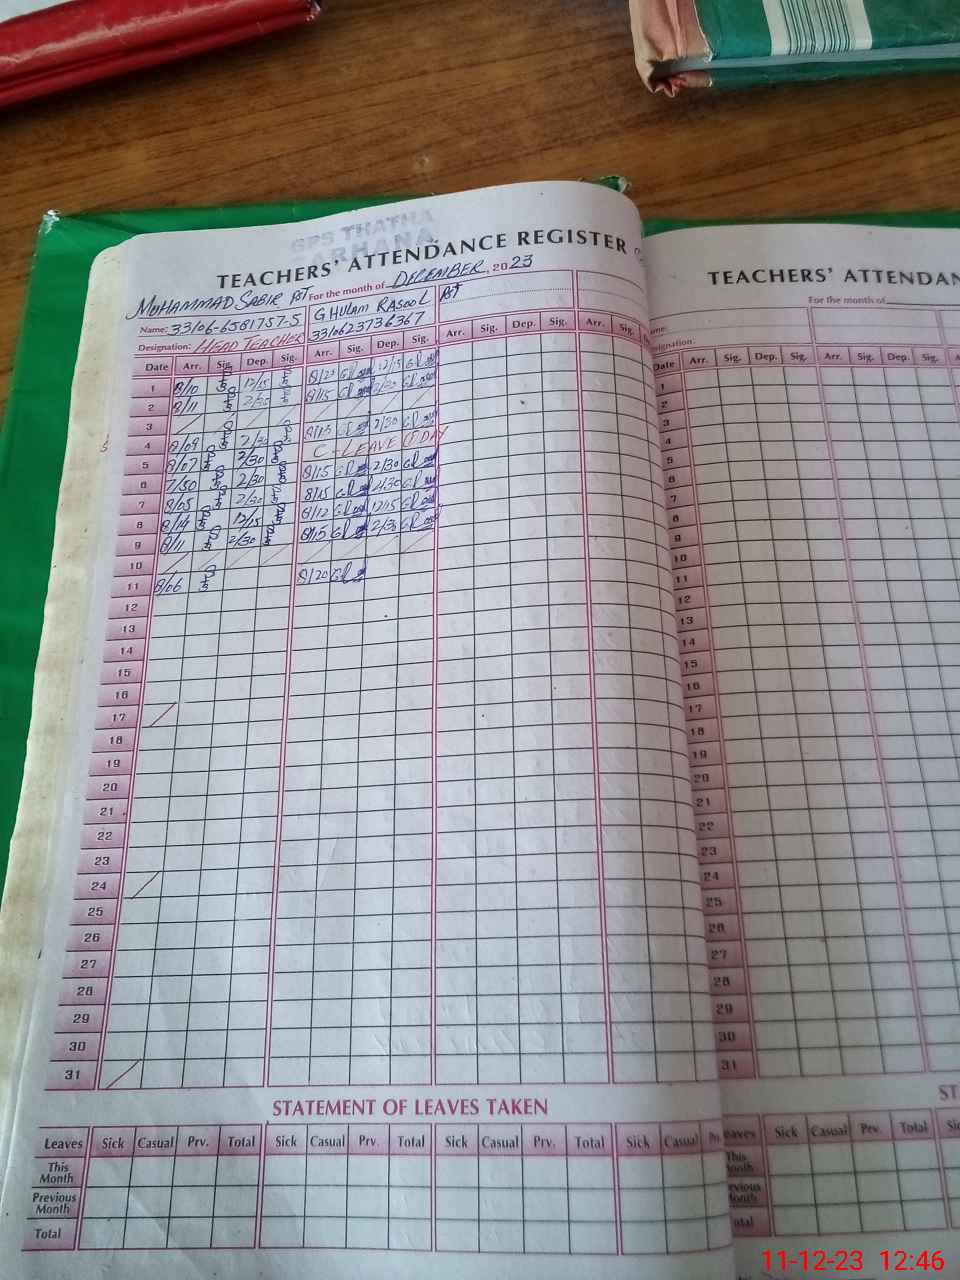 GPS THATHA
TEACHERS' ATTENDANCE REGISTER
For the month of DECEMBER, 2023
MUHAMMAD SABIR PST GHULAM RASOOL PST
Name: 33106-6581757-5 3310623736367
Designation: HEAD TEACHER
Date Arr. Sig. Dep. Sig. Arr. Sig. Dep. Sig. Arr. Sig. Dep. Sig. Arr. Sig.
1 8/10 12/15 8/22 12/15
2 8/11 2/30 8/15 2/30
3
4 8/09 2/30 8/15 2/30
5 8/07 2/30 C-LEAVE 01 DAY
6 7/50 2/30 8/15 2/30
7 8/05 2/30 8/15 2/30
8 8/14 12/15 8/12 12/15
9 8/11 2/30 8/15 2/30
10
11 8/06 8/20
12
13
14
15
16
17
18
19
20
21
22
23
24
25
26
27
28
29
30
31
STATEMENT OF LEAVES TAKEN
Leaves Sick Casual Prv. Total Sick Casual Prv. Total Sick Casual Prv. Total Sick Casual
This Month
Previous Month
Total
TEACHERS' ATTENDAN
For the month of
Date Arr. Sig. Dep. Sig. Arr. Sig. Dep. Sig. Arr.
1
2
3
4
5
6
7
8
9
10
11
12
13
14
15
16
17
18
19
20
21
22
23
24
25
26
27
28
29
30
31
ST
Sick Casual Prv. Total
11-12-23 12:46